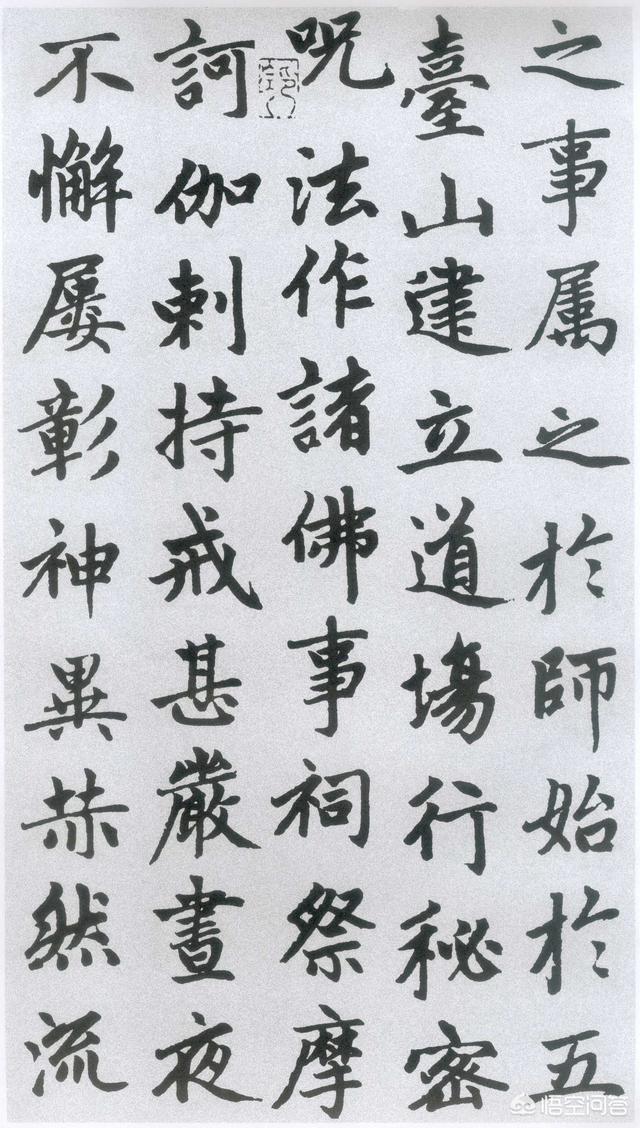 之事属之於師始於五
臺山建立道場行秘密
呪法作諸佛事祠祭摩
訶伽剌持戒甚嚴晝夜
不懈屡彰神異赫然流
悟空问答